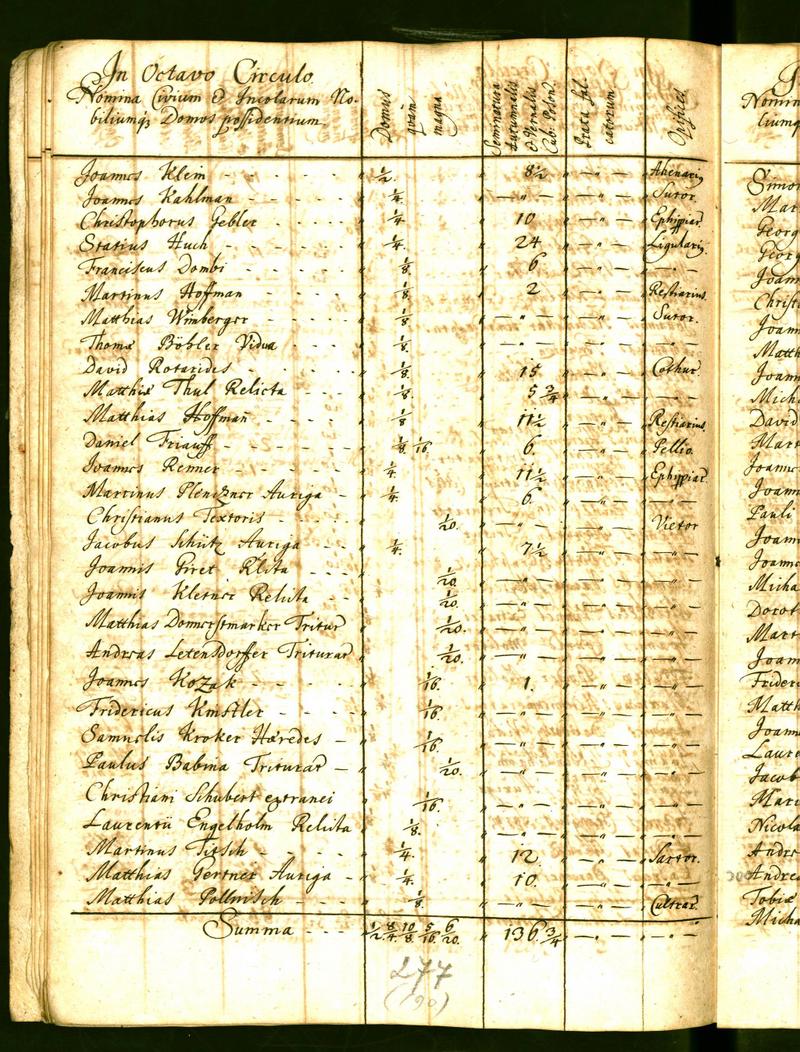 In Octavo Circulo
Nomina Civium et Incolarum No-
biliumq; Domos possidentium
Domus quam magna
Seminatura Autumnalis et Vernalis Cub: Poson:
Prata fal catorum
Opifices
Joannes Klein - - - - - ½ 8½ " - " - Athenariq
Joannes Kahlman - - - - " ¼ " - " - " - " - Sutor.
Christophorus Gebler - - - - " ¼ " 10 " - " - Ephippiar
Statius Huch - - - - - " ¼ " 24 " - " - Ligulariq
Franciscus Dombi - - - - " ⅛ " 6 " - " - " - -
Martinus Hoffman - - - - " ⅛ " 2 " - " - Restiarius
Matthias Wimberger - - - - " ⅛ " - " - " - " - Sutor.
Thomæ Böbler Vidua - - - " ⅛ " - " - " - " - " - " -
David Rotarides - - - - " ⅛ " 15 " - " - Cothur
Matthiæ Thul Relicta - - - " ⅛ " 5 ¾ " - " - " - -
Matthias Hoffman - - - - " ⅛ " 11½ " - " - Restiarius
Daniel Triauff - - - - - " ⅛ 1/16 " 6. " - " - Pellio
Joannes Renner - - - - " ¼ " 11½ " - " - Ephippiar
Martinus Plenizner Auriga - " ¼ " 6. " - " - " - " -
Christianus Textoris - - - - " 1/20. " - " - " - " - Vietor
Jacobus Schütz Auriga - - - " ¼ " 7½ " - " - " - " -
Joannis Giret Rlita - - - - " 1/20 " - " - " - " - " - " -
Joannis Kletner Relicta - - - " 1/20. " - " - " - " - " - " -
Matthias Donnerstmarker Tritur " 1/20. " - " - " - " - " - " -
Andreas Letensdorffer Triturar " 1/20. " - " - " - " - " - " -
Joannes Kozak - - - - " 1/16. " 1. " - " - " - " -
Fridericus Kinstler - - - - " 1/16. " - " - " - " - " - " -
Samuelis Kroker Hæredes - " 1/16. " - " - " - " - " - " -
Paulus Babina Triturar - " 1/20. " - " - " - " - " - " -
Christiani Schubert extranei " 1/16. " - " - " - " - " - " -
Laurentii Engelholm Relicta " ⅛. " - " - " - " - " - " -
Martinus Tizsch - - - - " ¼. " 12. " - " - Sartor.
Matthias Gertner Auriga - " ¼ " 10. " - " - " - " -
Matthias Pollnisch - - - - " ⅛. " - " - " - " - Cultrar
Summa - - - ½ 8/4 10/8 5/16 6/20. " 136 ¾ " - " - " - " -
277
(190)
Nomin
liumq
Simon
Mar
Georg
Georg
Joan
Christ
Joan
Matth
Joann
Micha
David
Mart
Joannes
Joann
Pauli
Joann
Joannes
Micha
Dorot
Mart
Joann
Frideri
Matth
Joann
Laure
Jacob
Marc
Nicola
Andre
Andrea
Tobiæ
Micha